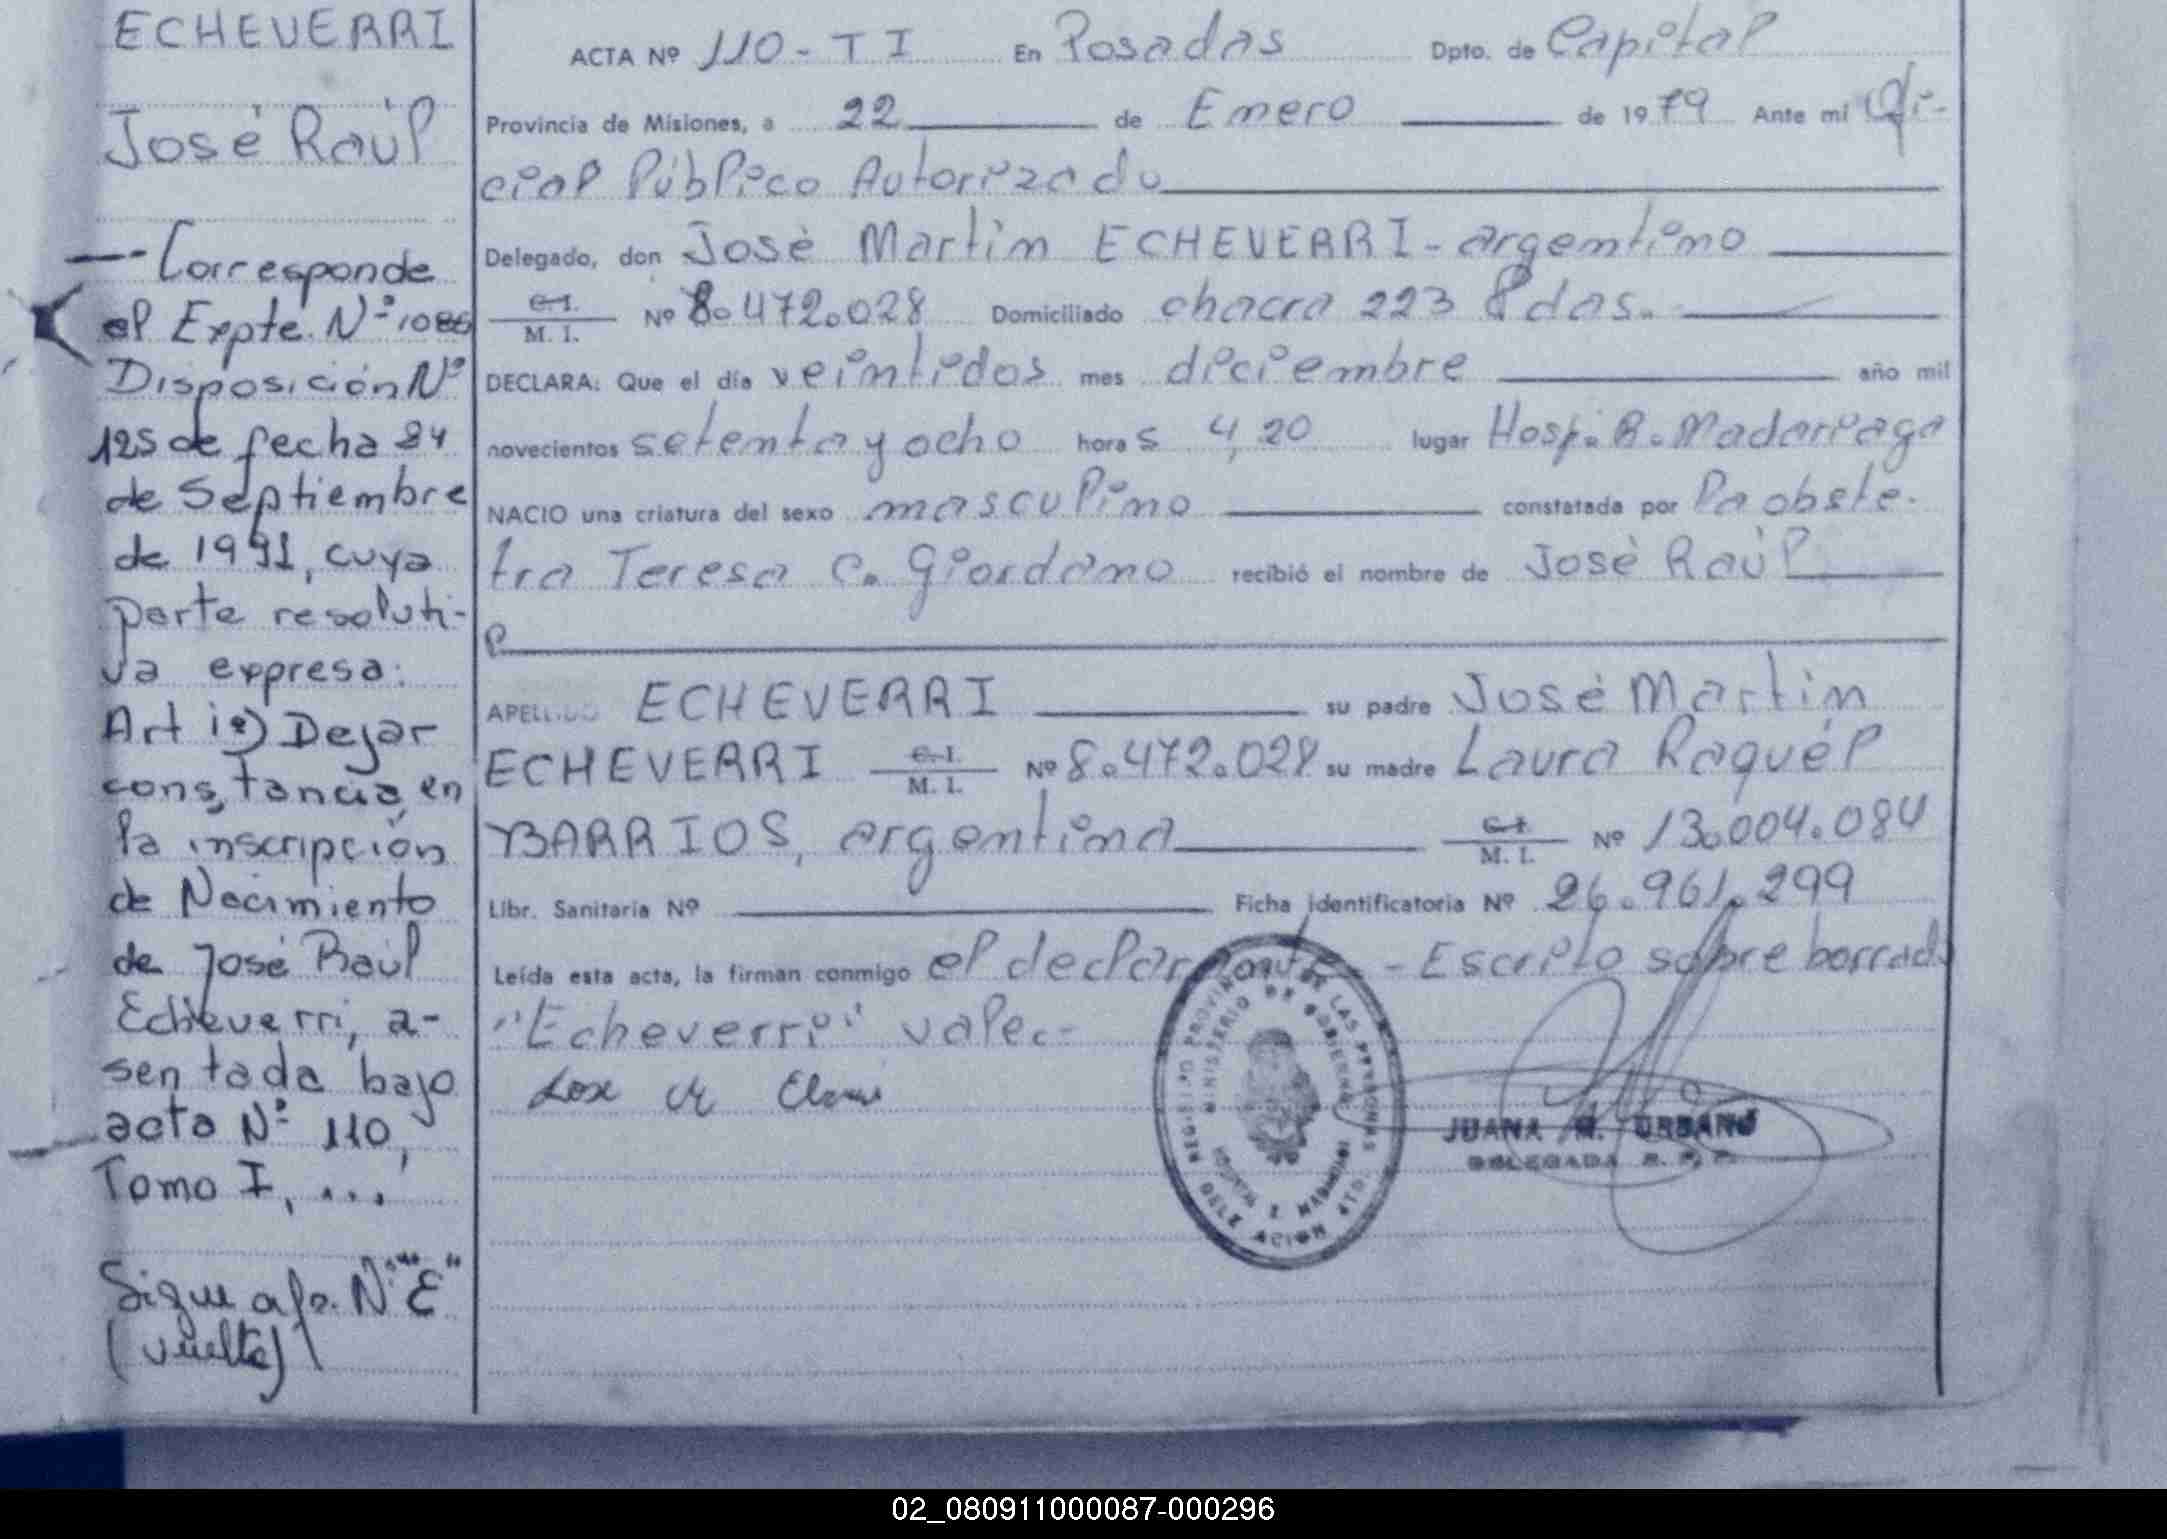 ECHEVERRI
José Raúl
—Corresponde
al Expte. Nº 1086
Disposición Nº
125 de fecha 24
de Septiembre
de 1991, cuya
parte resoluti-
va expresa:
Art 1º) Dejar
constancia, en
la inscripción
de Nacimiento
de José Raúl
Echeverri, a-
sentada bajo
acta Nº 110,
Tomo I, ...
Sigue a fo. Nº "E"
(vuelta)
ACTA Nº 110-TI En Posadas Dpto. de Capital
Provincia de Misiones, a 22 de Enero de 1979 Ante mí Ofi-
cial Público Autorizado
Delegado, don José Martín ECHEVERRI - argentino
C.I. M. I. Nº 8.472.028 Domiciliado chacra 223 Pdas.
DECLARA: Que el día veintidos mes diciembre año mil
novecientos setenta y ocho hora s 4,20 lugar Hosp. R. Madariaga
NACIO una criatura del sexo masculino constatada por la obste-
tra Teresa C. Giordano recibió el nombre de José Raúl
APELLIDO ECHEVERRI su padre José Martín
ECHEVERRI C.I. M. I. Nº 8.472.028 su madre Laura Raquél
BARRIOS, argentina C.I. M. I. Nº 13.004.084
Libr. Sanitaria Nº Ficha identificatoria Nº 26.961.299
Leída esta acta, la firman conmigo el declarante.- Escrito sobre borrado
"Echeverri" vale.-
REGISTRO PROVINCIAL DE LAS PERSONAS
MINISTERIO DE GOBIERNO
DELEGACION
JUANA M. URBANO
DELEGADA R. P. P.
02_080911000087-000296